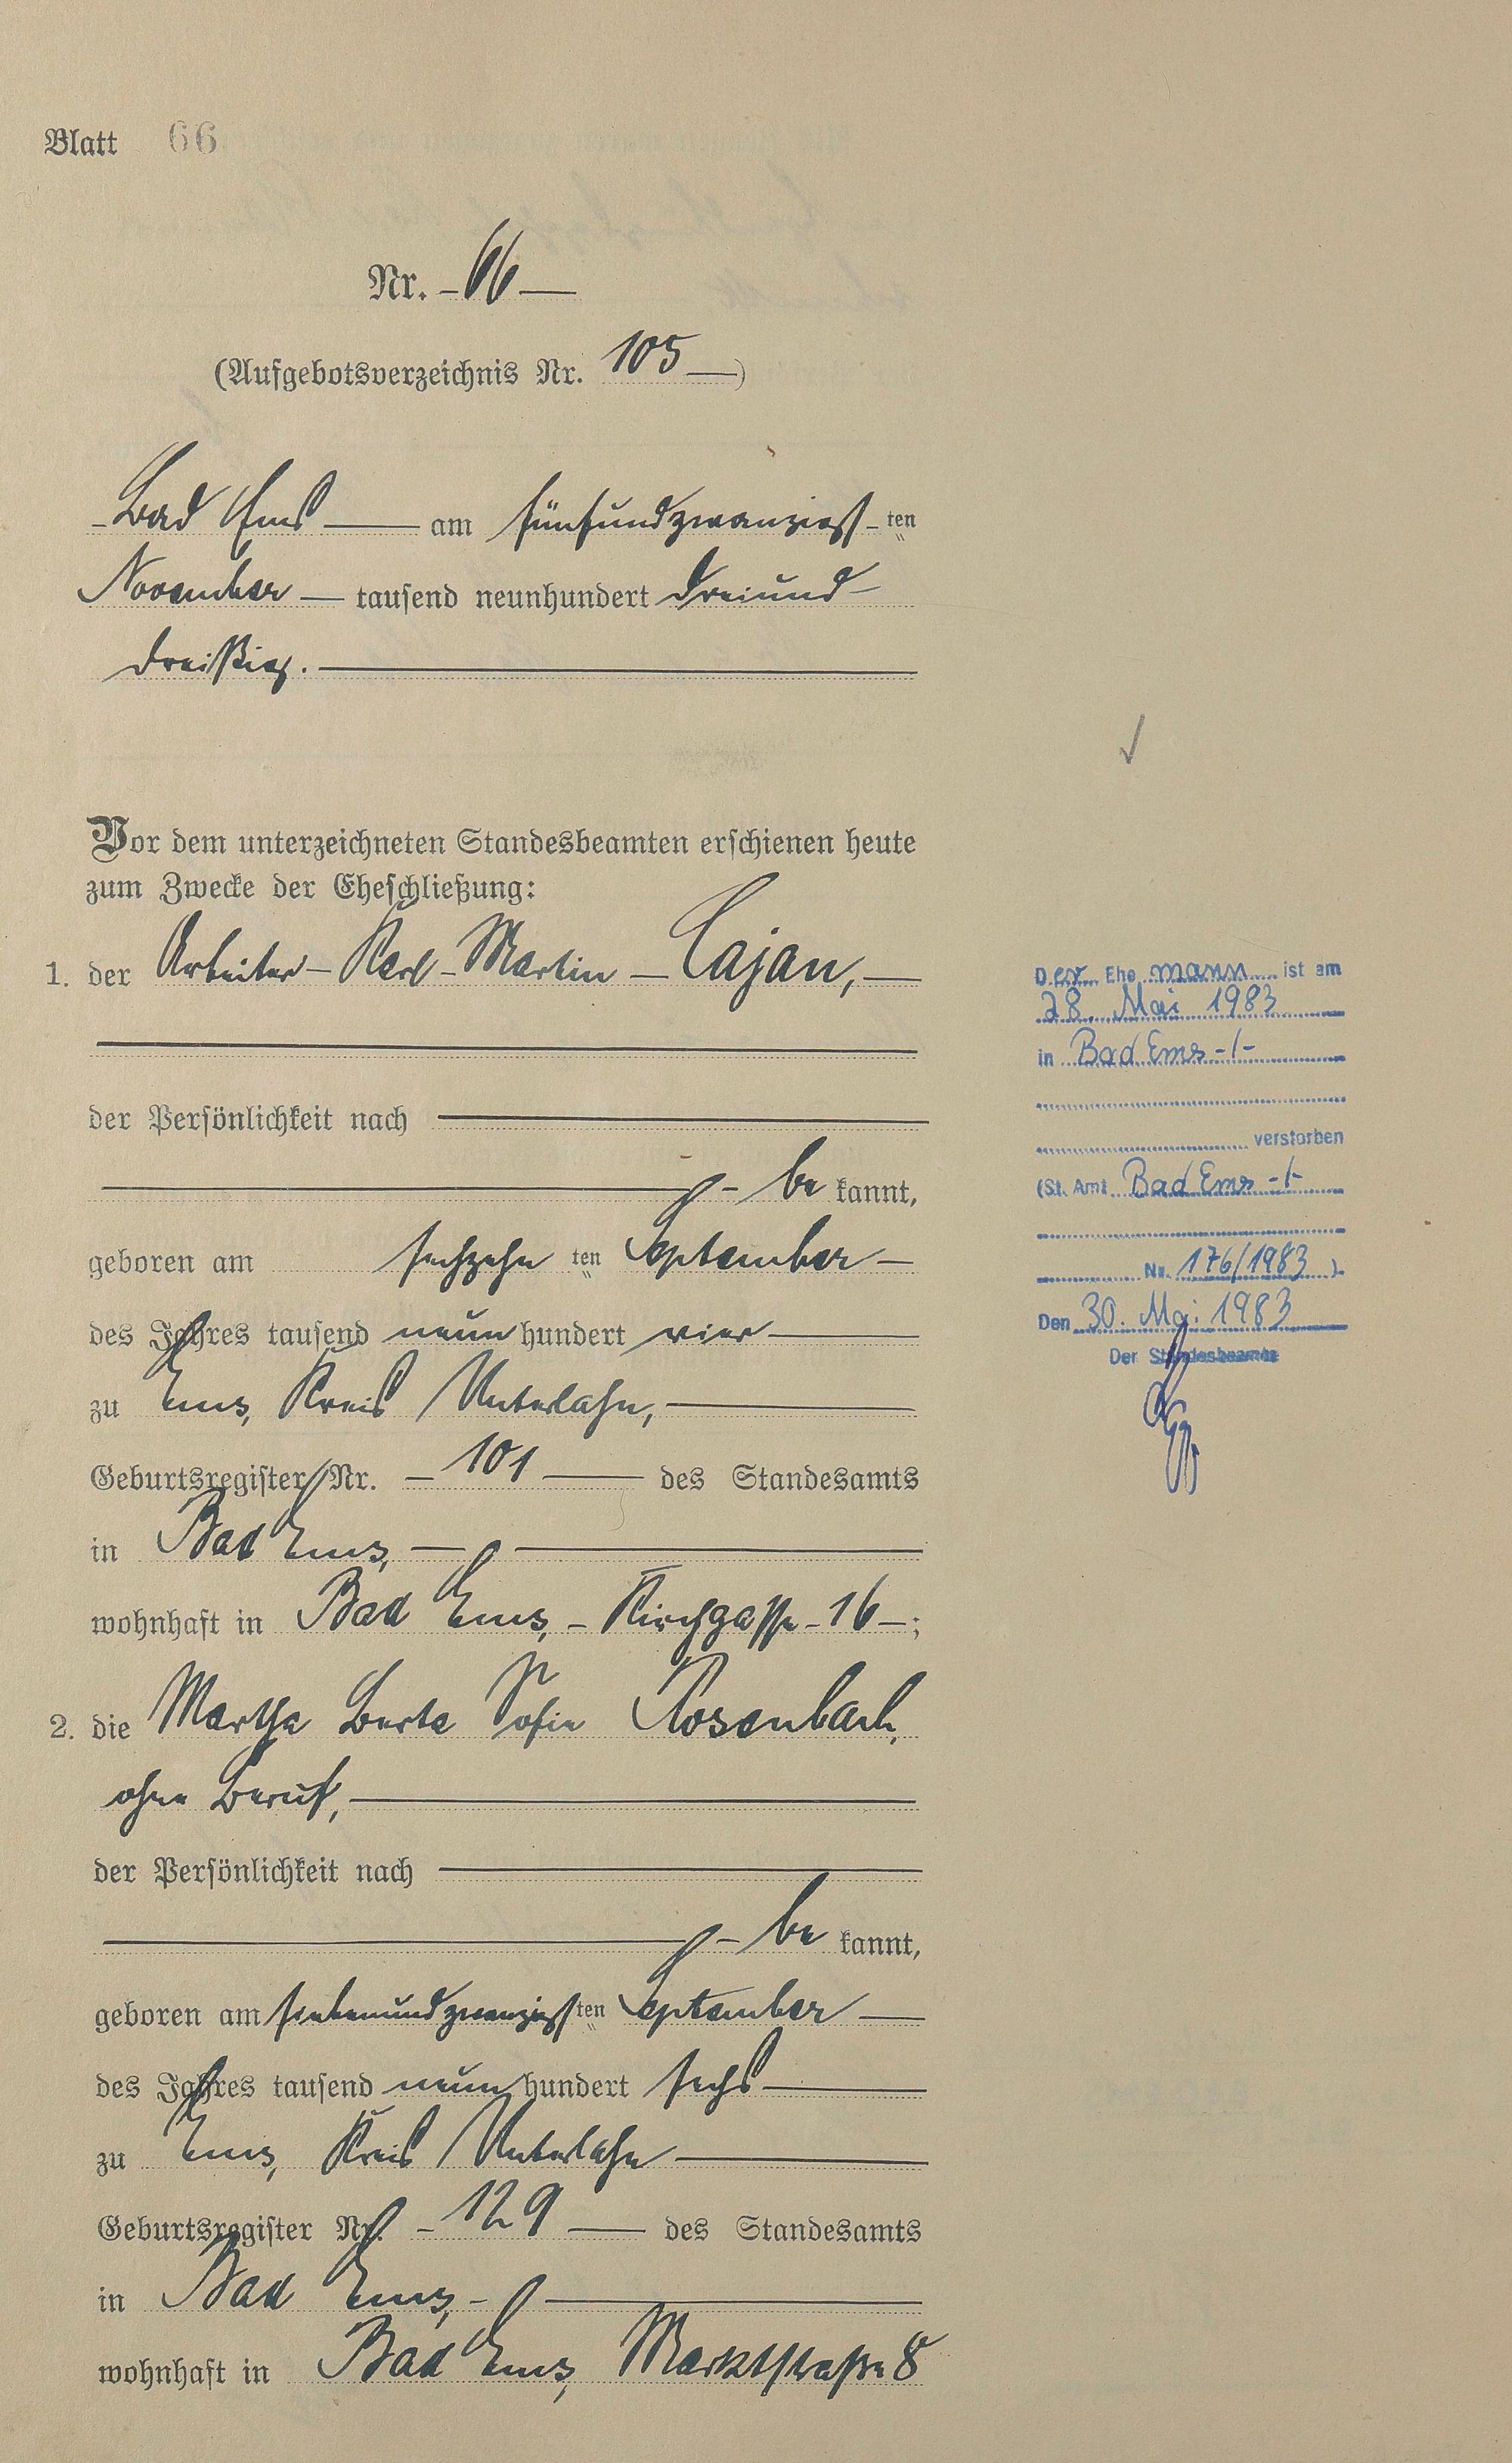 Blatt 66
Nr. - 66 -
(Aufgebotsverzeichnis Nr. 105 -)
- Bad Ems - am fünfundzwanzigst - ten
November - tausend neunhundert dreiund-
dreißig. -
Vor dem unterzeichneten Standesbeamten erschienen heute
zum Zwecke der Eheschließung:
1. der Arbeiter - Karl - Martin - Cajan, -
der Persönlichkeit nach -
- be kannt,
geboren am sechzehn ten September -
des Jahres tausend neun hundert vier -
zu Ems, Kreis Unterlahn, -
Geburtsregister Nr. - 101 - des Standesamts
in Bad Ems, -
wohnhaft in Bad Ems, - Kirchgasse - 16 - ;
2. die Martha Berta Sofie Rosenbach,
ohne Beruf, -
der Persönlichkeit nach -
- be kannt,
geboren am siebenundzwanzigst ten September -
des Jahres tausend neun hundert sechs -
zu Ems, Kreis Unterlahn -
Geburtsregister Nr. - 129 - des Standesamts
in Bad Ems, -
wohnhaft in Bad Ems, Marktstraße 8
Der Ehe mann ist am
28. Mai 1983
in Bad Ems -/-
verstorben
(St. Amt Bad Ems -/-
Nr. 176/1983 )
Den 30. Mai 1983
Der Standesbeamte